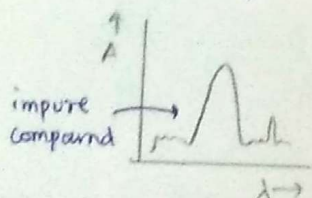 A
impure
compound
λ→